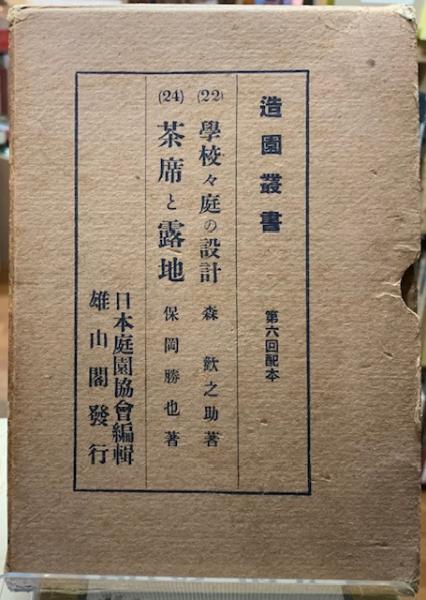 造園叢書 第六回配本
(22) 學校々庭の設計 森歓之助著
(24) 茶席と露地 保岡勝也著
日本庭園協會編輯
雄山閣發行